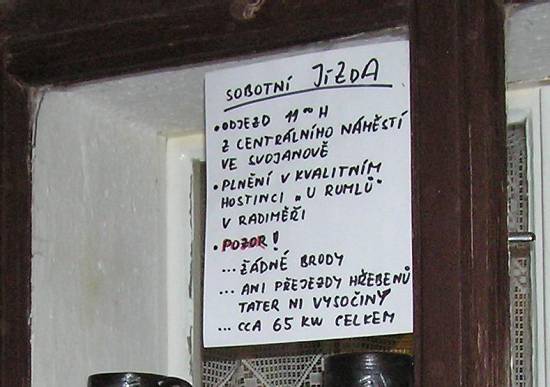 SOBOTNÍ JÍZDA
• ODJEZD 11⁰⁰ H
Z CENTRÁLNÍHO NÁMĚSTÍ
VE SVOJANOVĚ
• PLNĚNÍ V KVALITNÍM
HOSTINCI „U RUMLŮ"
V RADIMĚŘI
• POZOR!
... ŽÁDNÉ BRODY
... ANI PŘEJEZDY HŘEBENŮ
TATER NI VYSOČINY
... CCA 65 KW CELKEM